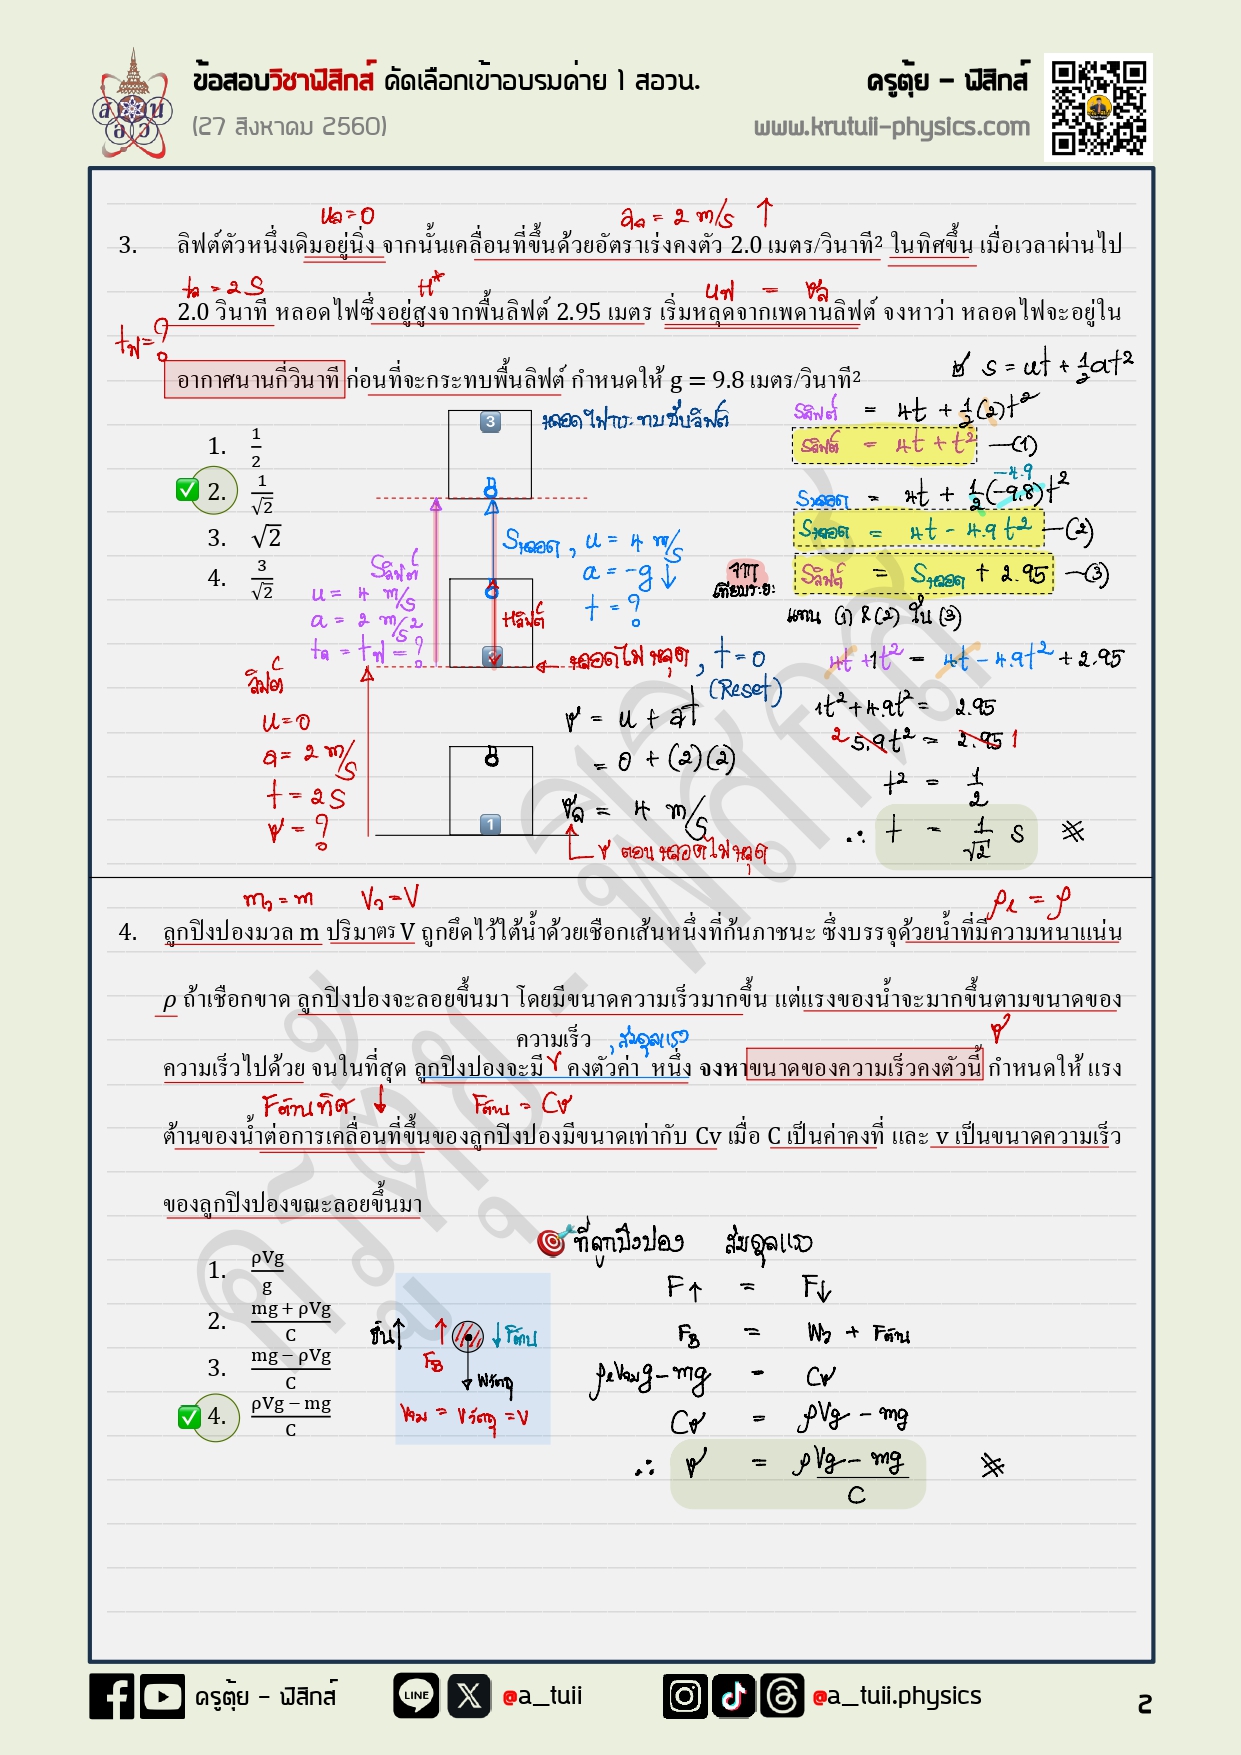 ข้อสอบวิชาฟิสิกส์ คัดเลือกเข้าอบรมค่าย 1 สอวน.
ครูตุ้ย – ฟิสิกส์
(27 สิงหาคม 2560)
www.krutuii-physics.com
uล = 0
aล = 2 m/s ↑
3. ลิฟต์ตัวหนึ่งเดิมอยู่นิ่ง จากนั้นเคลื่อนที่ขึ้นด้วยอัตราเร่งคงตัว 2.0 เมตร/วินาที² ในทิศขึ้น เมื่อเวลาผ่านไป
tล = 2 s
H*
uฟ = vล
2.0 วินาที หลอดไฟซึ่งอยู่สูงจากพื้นลิฟต์ 2.95 เมตร เริ่มหลุดจากเพดานลิฟต์ จงหาว่า หลอดไฟจะอยู่ใน
tฟ = ?
อากาศนานกี่วินาที ก่อนที่จะกระทบพื้นลิฟต์ กำหนดให้ g = 9.8 เมตร/วินาที²
s = ut + ½at²
1. 1/2
2. 1/√2
3. √2
4. 3/√2
3 หลอดไฟกระทบพื้นลิฟต์
Sลิฟต์ = 4t + ½(2)t²
Sลิฟต์ = 4t + t² —(1)
-4.9
Sหลอด = 4t + ½(-9.8)t²
Sหลอด = 4t - 4.9t² —(2)
จาก เทียบระยะ Sลิฟต์ = Sหลอด + 2.95 —(3)
แทน (1) & (2) ใน (3)
4t + 1t² = 4t - 4.9t² + 2.95
1t² + 4.9t² = 2.95
2 5.9t² = 2.95 1
t² = 1/2
∴ t = 1/√2 s
Sหลอด, u = 4 m/s
a = -g ↓
t = ?
Sลิฟต์
u = 4 m/s
a = 2 m/s²
tล = tฟ = ?
Hลิฟต์
2
หลอดไฟหลุด, t = 0
(Reset)
ลิฟต์
u = 0
a = 2 m/s
t = 2 s
v = ?
1
v = u + at
= 0 + (2)(2)
vล = 4 m/s
v ตอนหลอดไฟหลุด
mว = m
Vว = V
ρl = ρ
4. ลูกปิงปองมวล m ปริมาตร V ถูกยึดไว้ใต้น้ำด้วยเชือกเส้นหนึ่งที่ก้นภาชนะ ซึ่งบรรจุด้วยน้ำที่มีความหนาแน่น
ρ ถ้าเชือกขาด ลูกปิงปองจะลอยขึ้นมา โดยมีขนาดความเร็วมากขึ้น แต่แรงของน้ำจะมากขึ้นตามขนาดของ
ความเร็ว , สมดุลแรง
v
ความเร็วไปด้วย จนในที่สุด ลูกปิงปองจะมี v คงตัวค่า หนึ่ง จงหาขนาดของความเร็วคงตัวนี้ กำหนดให้ แรง
Fต้านทิศ ↓
Fต้าน = Cv
ต้านของน้ำต่อการเคลื่อนที่ขึ้นของลูกปิงปองมีขนาดเท่ากับ Cv เมื่อ C เป็นค่าคงที่ และ v เป็นขนาดความเร็ว
ของลูกปิงปองขณะลอยขึ้นมา
1. ρVg/g
2. mg + ρVg/C
3. mg − ρVg/C
4. ρVg − mg/C
ขึ้น ↑
FB
↓ Fต้าน
Wวัตถุ
Vจม = Vวัตถุ = V
ที่ลูกปิงปอง สมดุลแรง
F↑ = F↓
FB = Wว + Fต้าน
ρlVจมg - mg = Cv
Cv = ρVg - mg
∴ v = ρVg - mg/C
ครูตุ้ย – ฟิสิกส์
LINE
@a_tuii
@a_tuii.physics
2
ครูตุ้ย - ฟิสิกส์